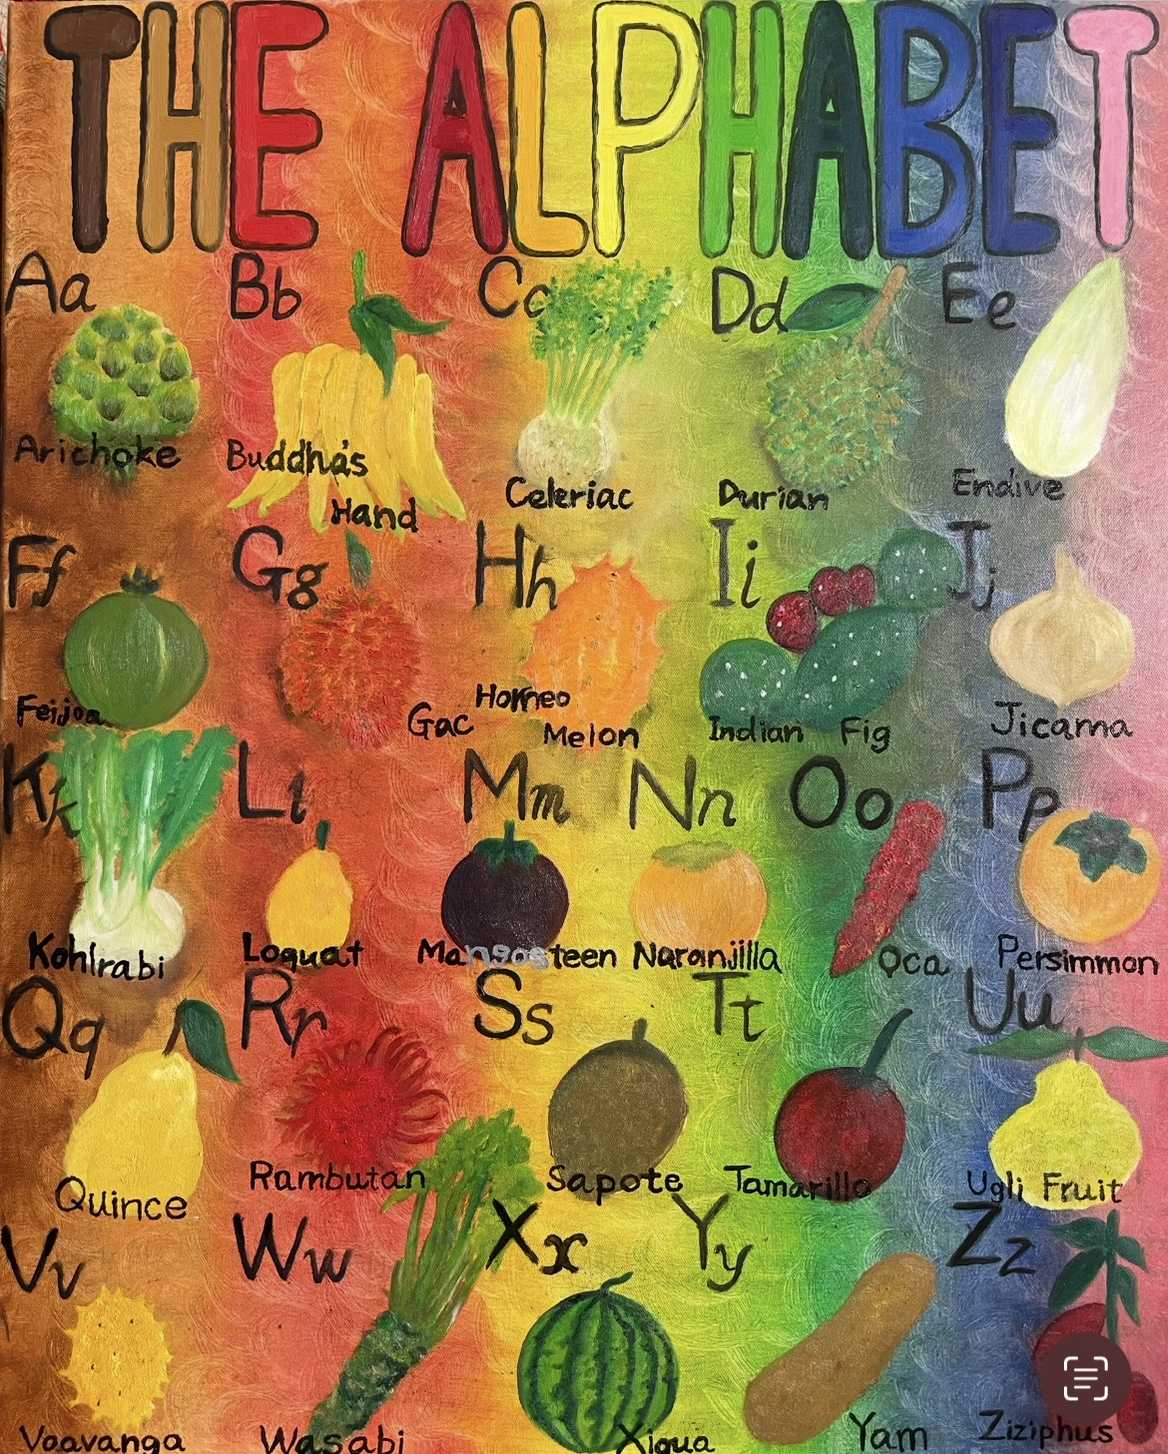 THE ALPHABET
Aa Bb Cc Dd Ee
Arichoke Buddha's Hand Celeriac Durian Endive
Ff Gg Hh Ii Jj
Feijoa Gac Horneo Melon Indian Fig Jicama
Kk Ll Mm Nn Oo Pp
Kohlrabi Loquat Mangosteen Naranjilla Oca Persimmon
Qq Rr Ss Tt Uu
Quince Rambutan Sapote Tamarillo Ugli Fruit
Vv Ww Xx Yy Zz
Voavanga Wasabi Xigua Yam Ziziphus